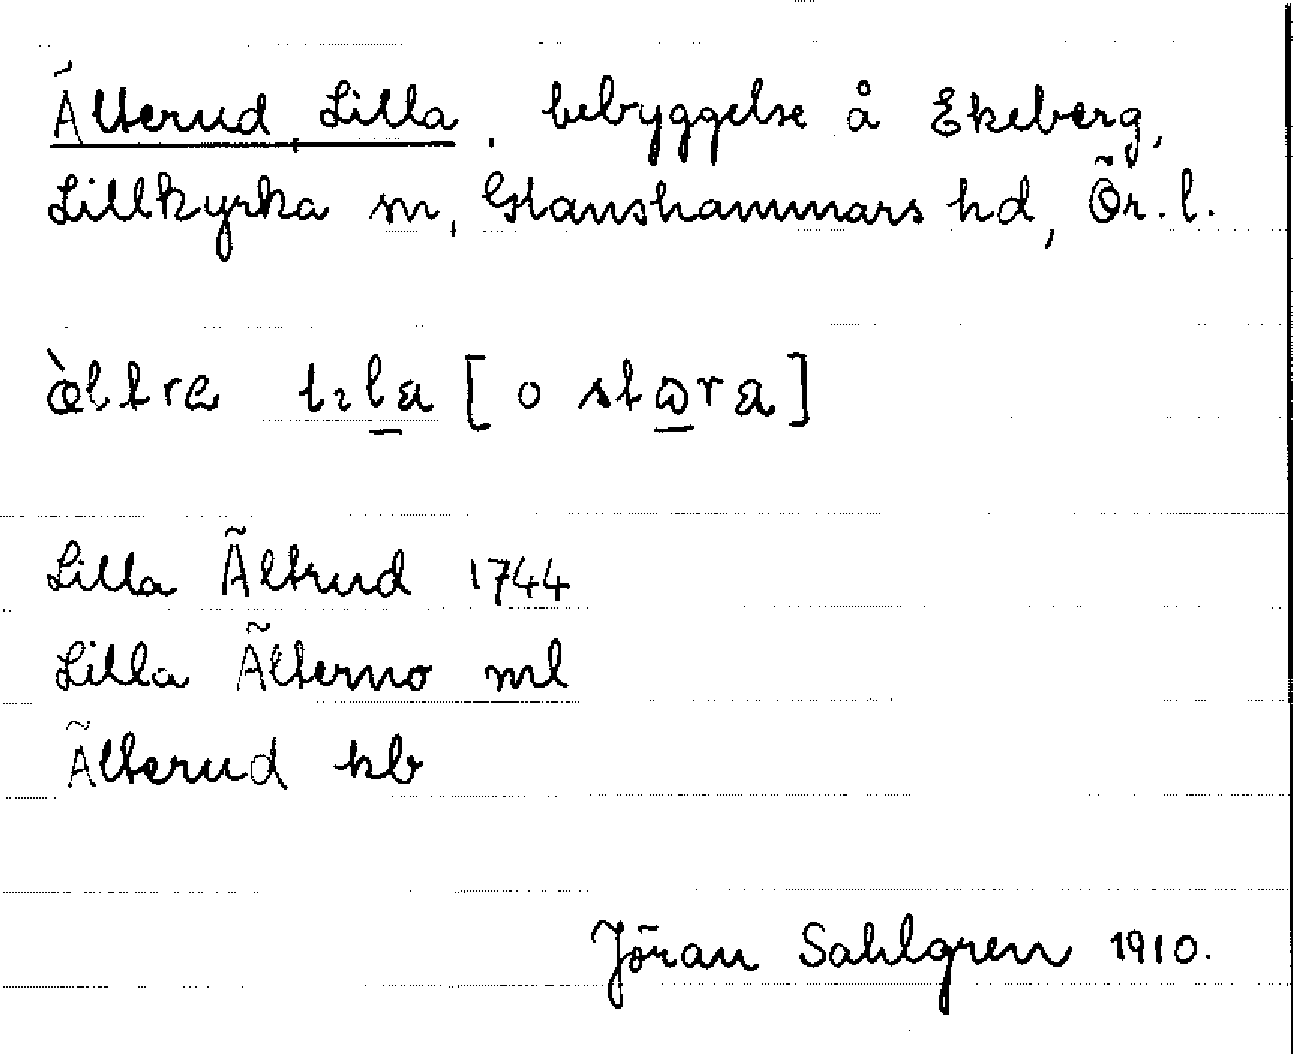 Älterud, Lilla, bebyggelse å Ekeberg,
Lillkyrka sn, Glanshammars hd, Ör. l.
æ̀ltra lɪla [o stωra]
Lilla Ältrud 1744
Lilla Älterno ml
Älterud kb
Jöran Sahlgren 1910.